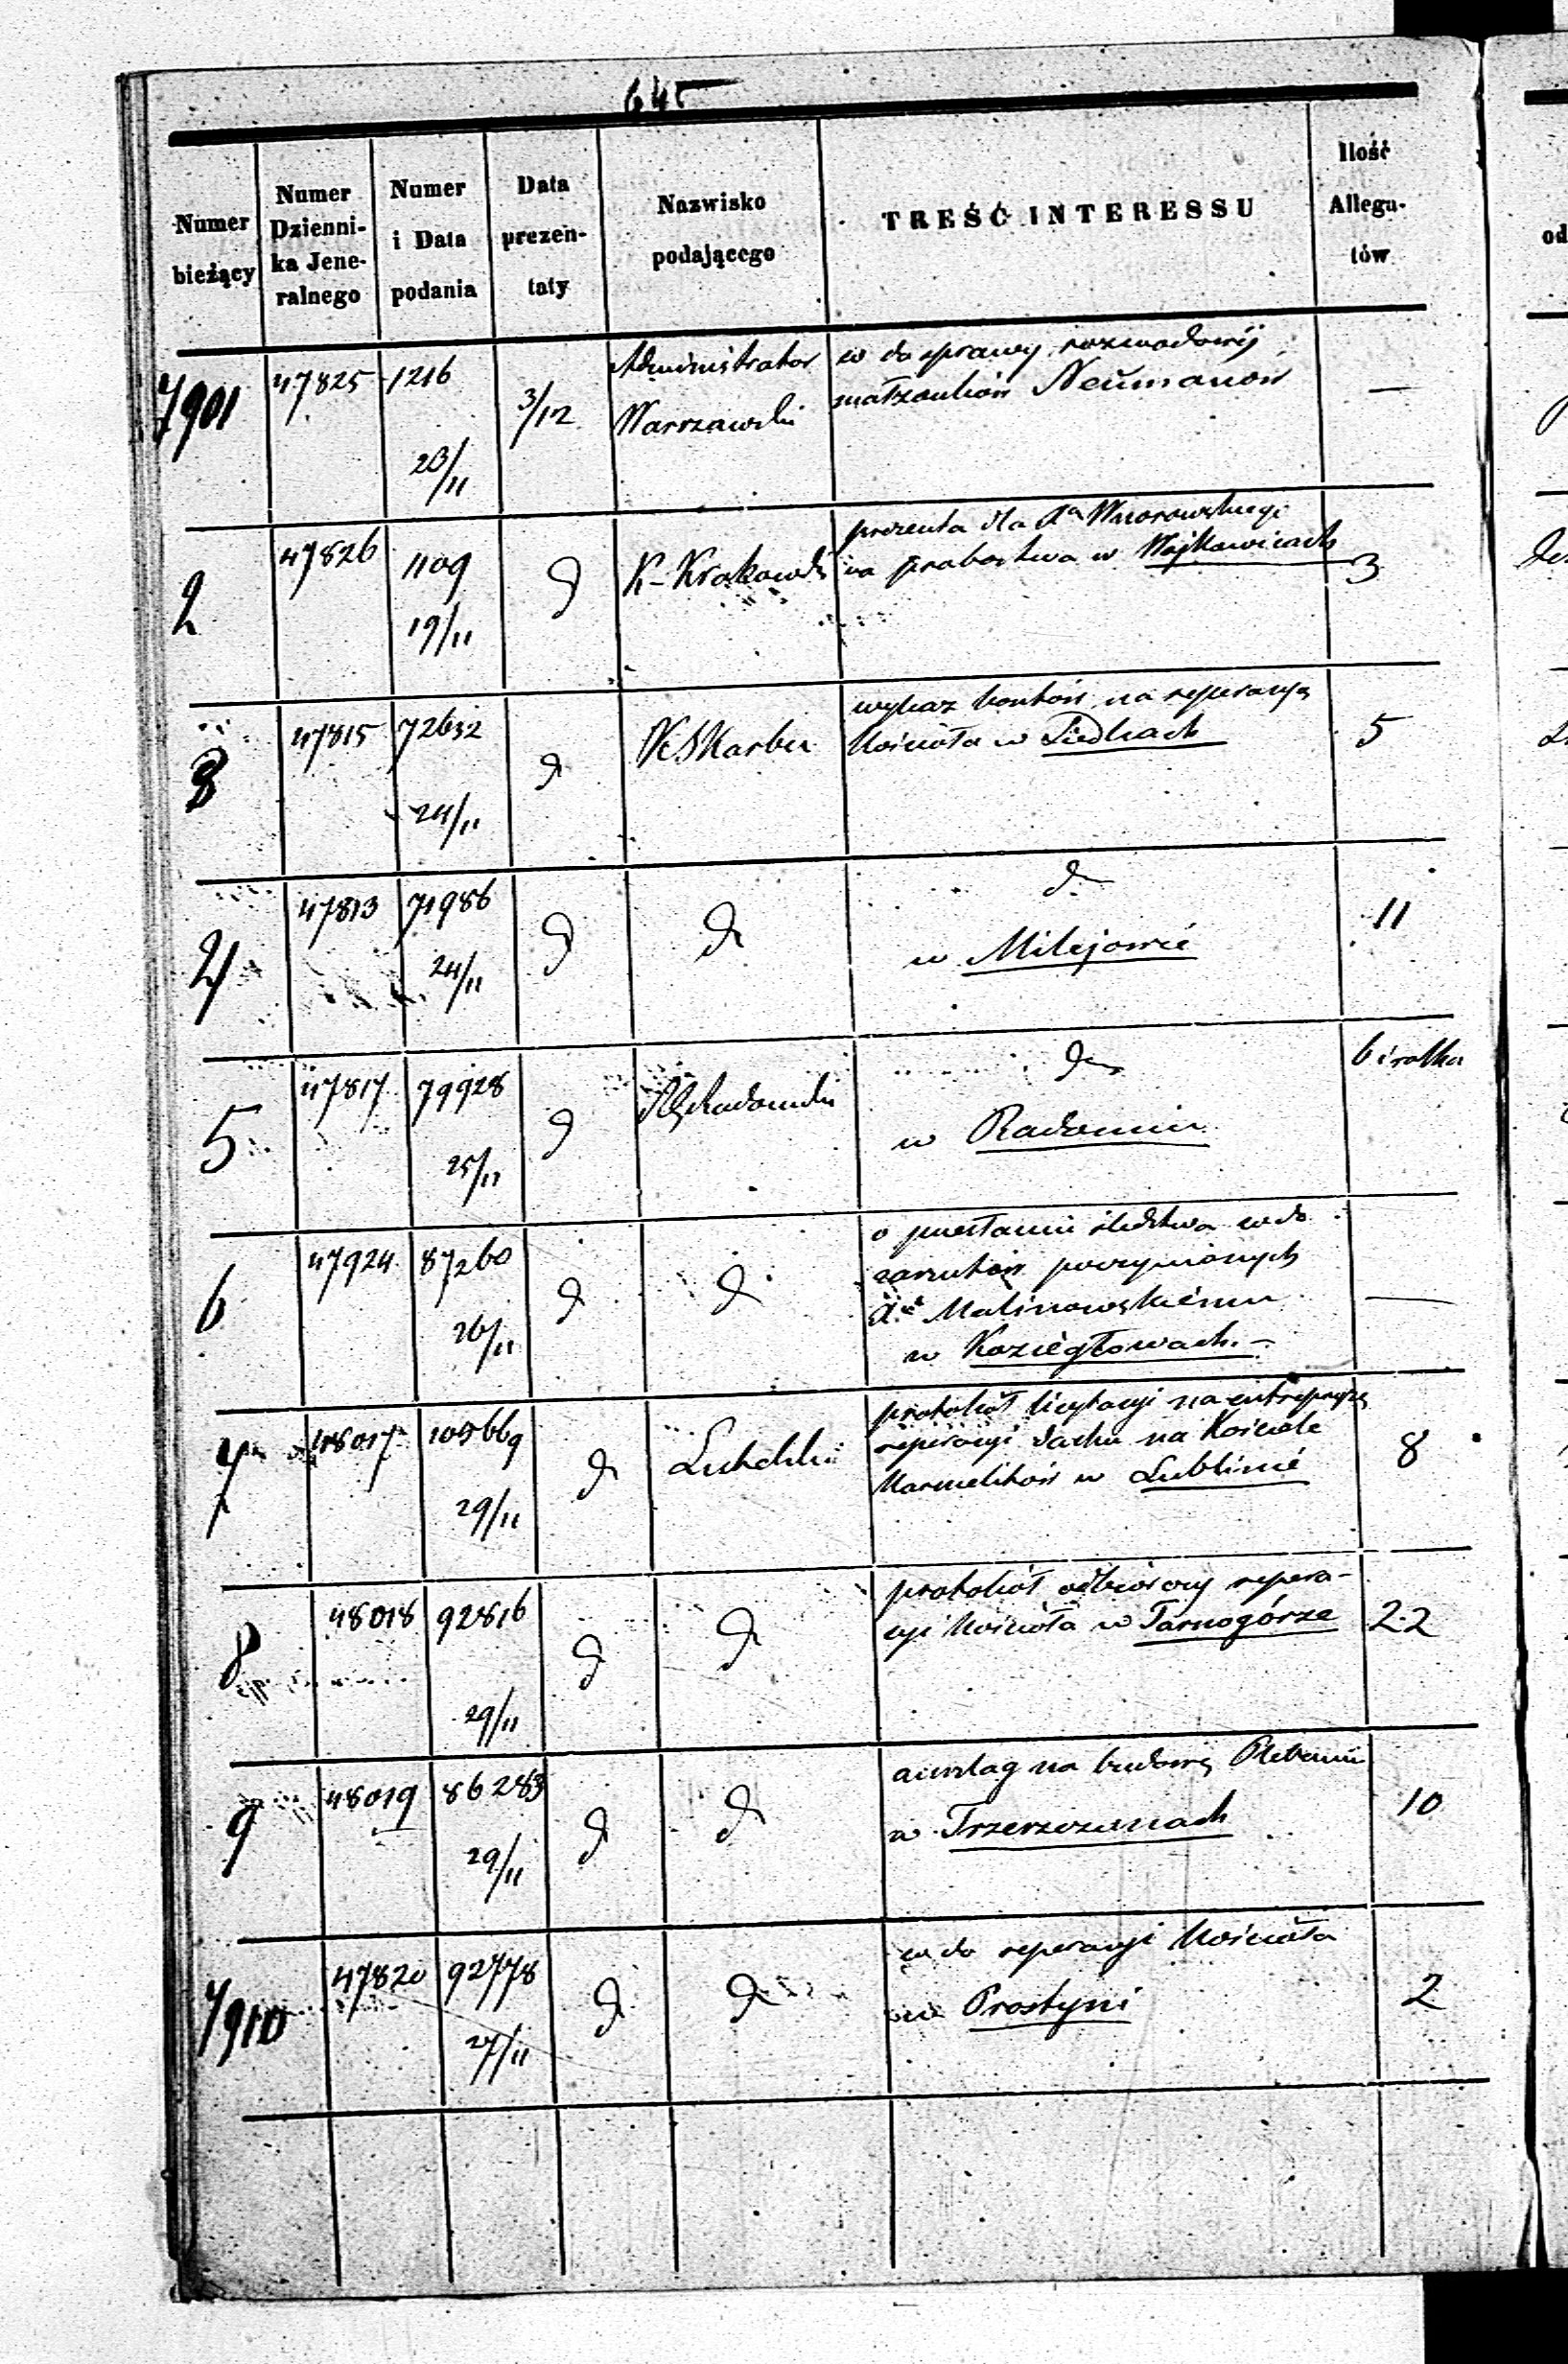 645
Numer bieżący
Numer Dzienni-ka Jene-ralnego
Numer i Data podania
Data prezen-taty
Nazwisko podającego
TREŚĆ INTERESSU
Ilość Allega-tów
7901 47825 1216 23/11 3/12 Administrator Warszawski
w do sprawy rozwodowéj
małżonków Neumanów
—
2 47826 1109 19/11 d K-Krakowski
prezenta dla Xa
na probostwo w Wojkowicach
3
3 47815 72632 24/11 d KSkarbu
wykaz kosztów na reperacyą
kościoła w Siedlcach
5
4 47813 71986 24/11 d d
d
w Milejowie
11
5 47817 79928 25/11 d Radomski
d
w Radomiu
6 i rolka
6 47924 87260 26/11 d d
o przesłaniu śledztwa w do
zarzutów poczynionych
Malinowskiému
w Koziégłowach. —
—
7 48017 105669 29/11 d Lubelski
protokół licytacyi na entrepryzę
reperacyi dachu na Kościele
Karmelitów w Lublinié
8
8 48018 92816 29/11 d d
protokół odbiorczy repera-
cyi kościoła w Tarnogórze
22
9 48019 86283 29/11 d d
anszlag na budowę Plebanii
w Trzeszczanach
10
7910 47820 92778 27/11 d d
w do reperacyi kościoła
w Prostyni
2